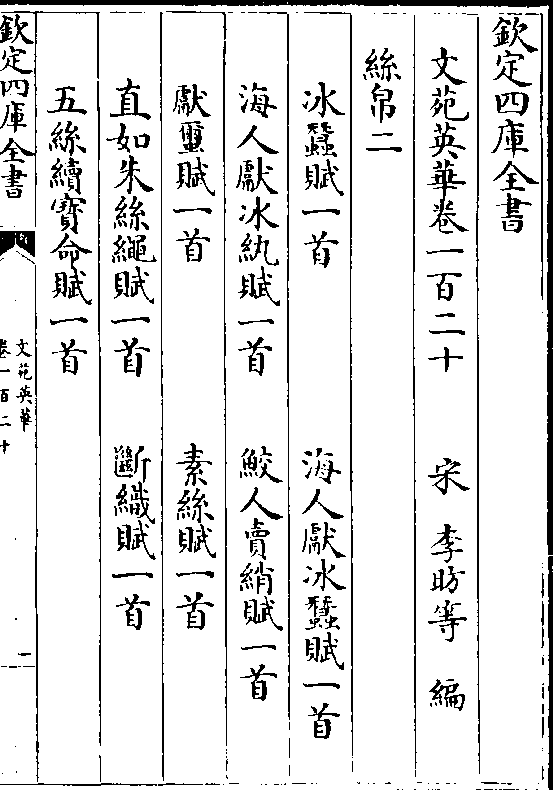 欽定四庫全書
文苑英華卷一百二十 宋 李昉等 編
絲帛二
冰蠶賦一首 海人獻冰蠶賦一首
海人獻冰紈賦一首 鮫人賣綃賦一首
獻璽賦一首 素絲賦一首
直如朱絲繩賦一首 斷織賦一首
五絲續寶命賦一首
欽定四庫全書
文苑英華
卷一百二十
一